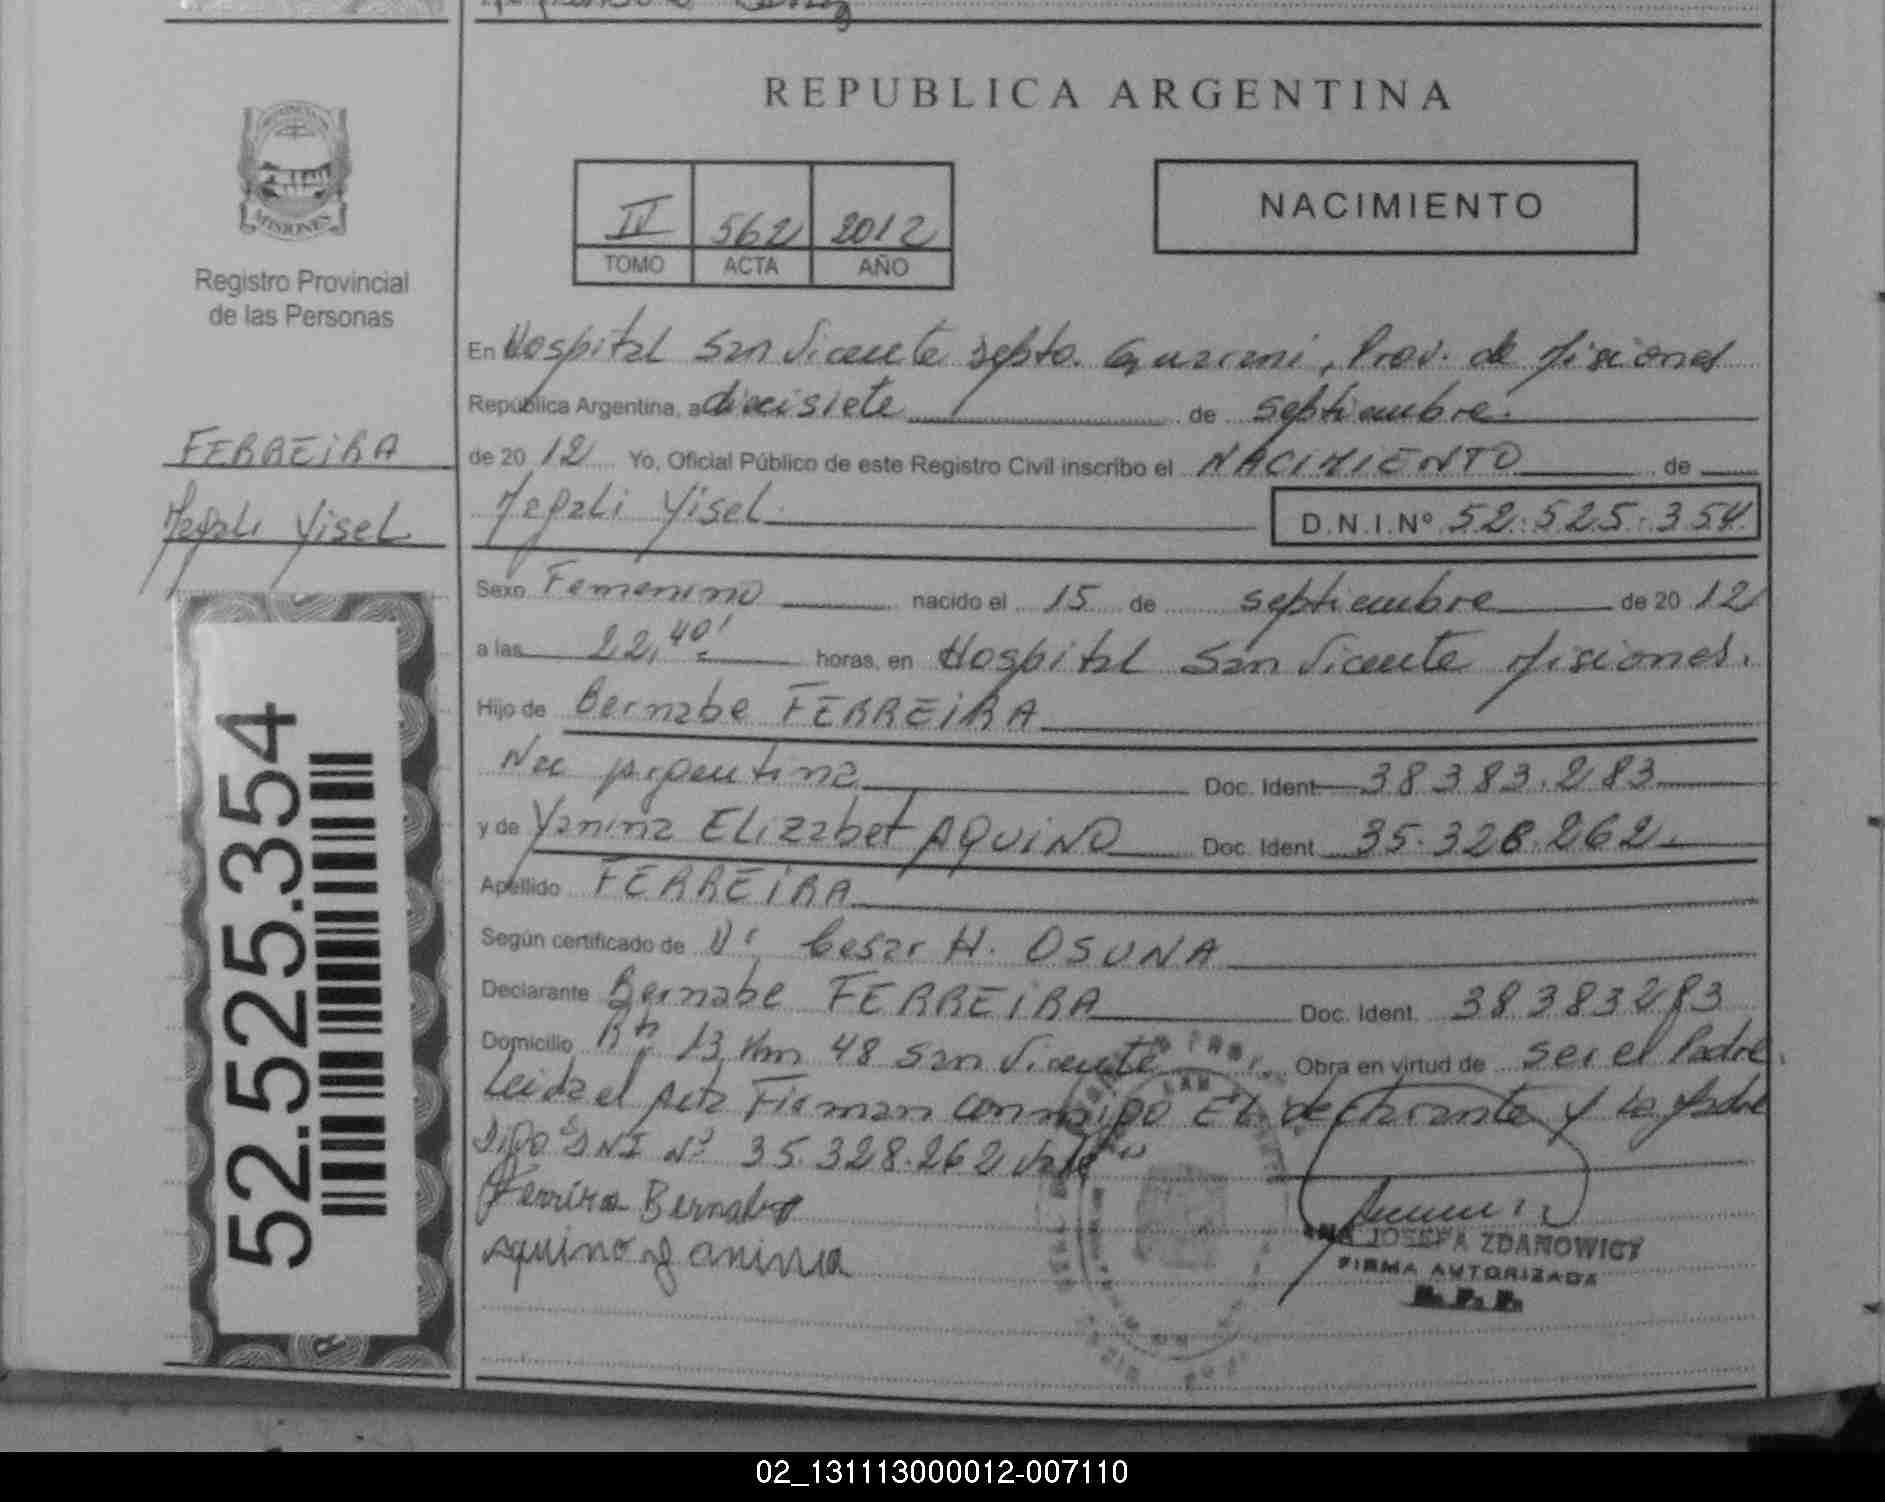 REPUBLICA ARGENTINA
MISIONES
Registro Provincial
de las Personas
IV 562 2012
TOMO ACTA AÑO
NACIMIENTO
En Hospital San Vicente Depto. Guarani, Prov. de Misiones
República Argentina, a diecisiete de septiembre.
de 20 12 Yo, Oficial Público de este Registro Civil inscribo el NACIMIENTO de
Magali Yisel D.N.I.Nº 52.525.354
FERREIRA
Magali Yisel
Sexo Femenino nacido el 15 de septiembre de 20 12
a las 22,40' horas, en Hospital San Vicente Misiones.
Hijo de Bernabe FERREIRA
Nac Argentina Doc. Ident 38383.283
y de Yanina Elizabet AQUINO Doc. Ident 35.328.262.
Apellido FERREIRA
Según certificado de Dr Cesar H. OSUNA
Declarante Bernabe FERREIRA Doc. Ident. 38383283
Domicilio Rta 13 Km 48 San Vicente Obra en virtud de ser el Padre.
Leida el Acta Firman conmigo El declarante y La Madre
DNI Nº 35.328.262 Vale"
Ferrira Bernabe
Aquino Yaninna
52.525.354
JOSEFA ZDANOWICZ
FIRMA AUTORIZADA
R. P. P.
02_131113000012-007110